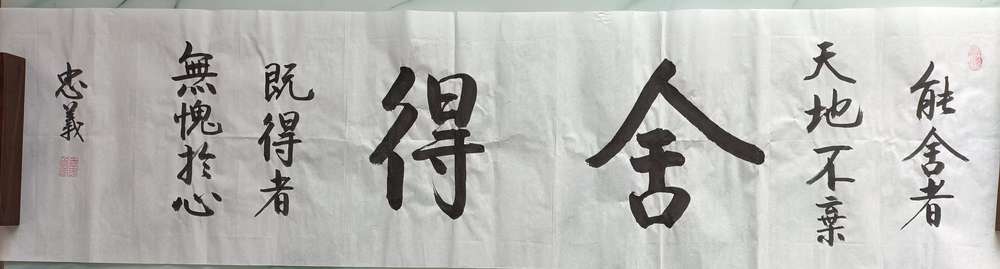 能舍者
天地不棄
舍得
既得者
無愧於心
忠義